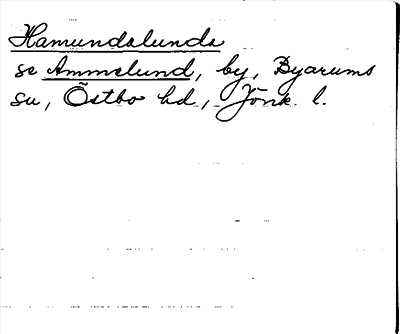 Hamundslunds
se Ammelund, by, Byarums
su, Östbo hd, Jönk. l.